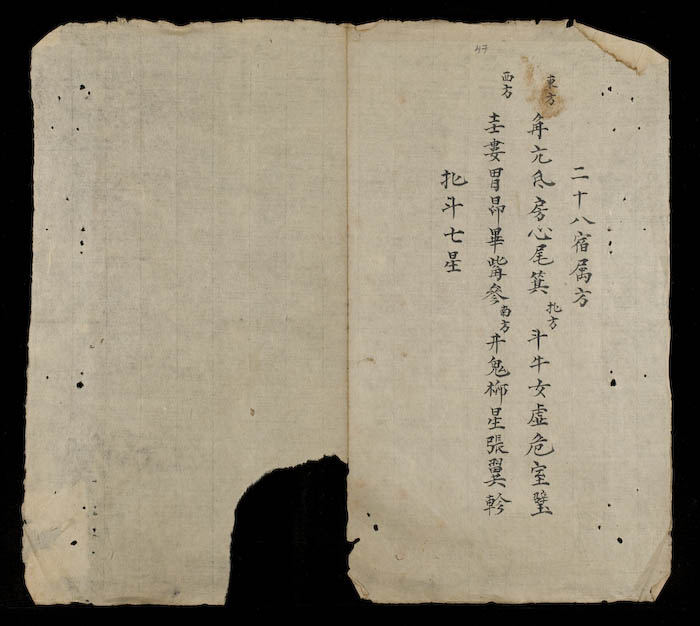 47
二十八宿属方
東方 角亢氐房心尾箕 北方 斗牛女虛危室壁
西方 奎婁胃昴畢觜參 南方 井鬼柳星張翼軫
北斗七星